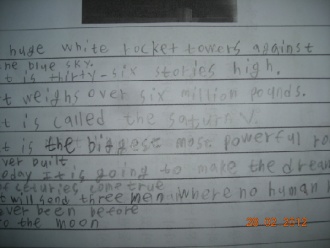 huge white rocket towers against
he blue sky.
t is thirty-six stories high.
t weighs over six million pounds.
t is called the saturn V.
t is the biggest most powerful ro
ver built
oday It is going to make the drea
of sturies come true
t will send three men where no human
ever been before
o the moon